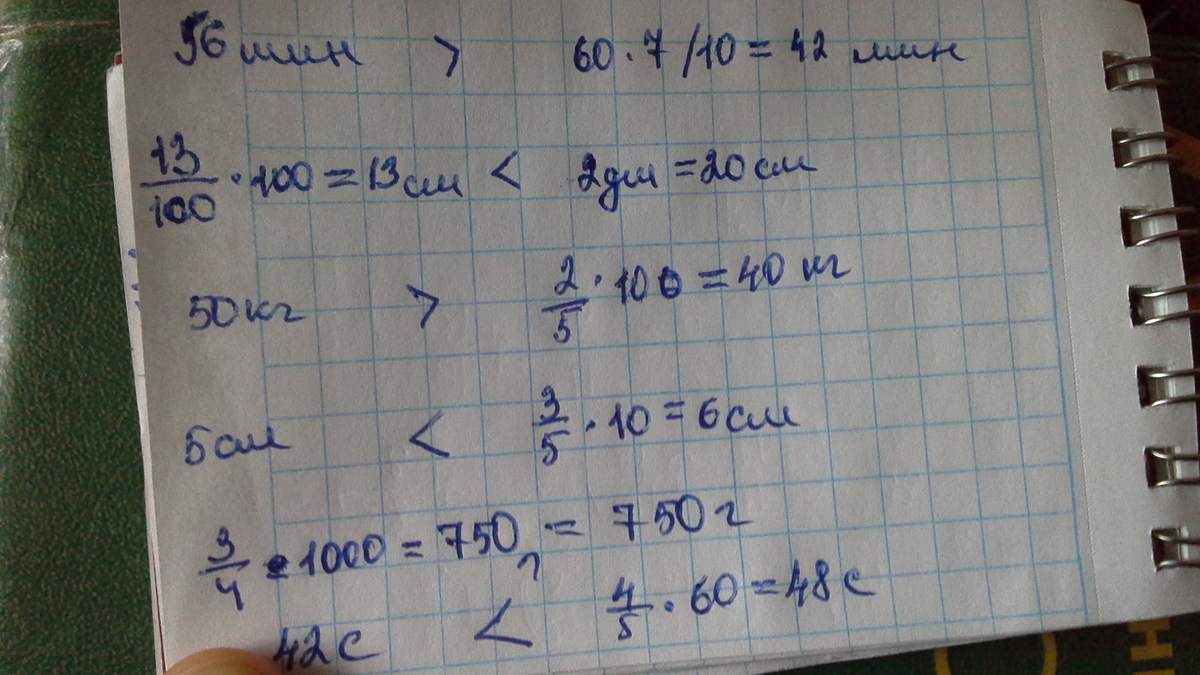 56 мин > 60 · 7/10 = 42 мин
13/100 · 100 = 13 см < 2 дм = 20 см
50 кг > 2/5 · 100 = 40 кг
5 см < 3/5 · 10 = 6 см
3/4 · 1000 = 750 г = 750 г
42 с < 4/5 · 60 = 48 с